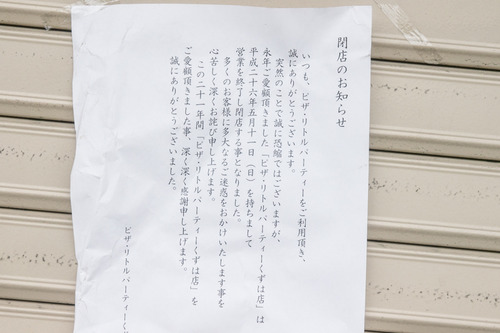 閉店のお知らせ
いつも、ピザ・リトルパーティーをご利用頂き、
誠にありがとうございます。
突然のことで誠に恐縮ではございますが、
永年ご愛顧頂きました「ピザ・リトルパーティーくずは店」は
平成二十六年五月十一日（日）を持ちまして
営業を終了し閉店する事となりました。
多くのお客様に多大なるご迷惑をおかけいたします事を
心苦しく深くお詫び申し上げます。
この二十一年間「ピザ・リトルパーティーくずは店」を
ご愛顧頂きました事、深く深く感謝申し上げます。
誠にありがとうございました。
ピザ・リトルパーティーくず